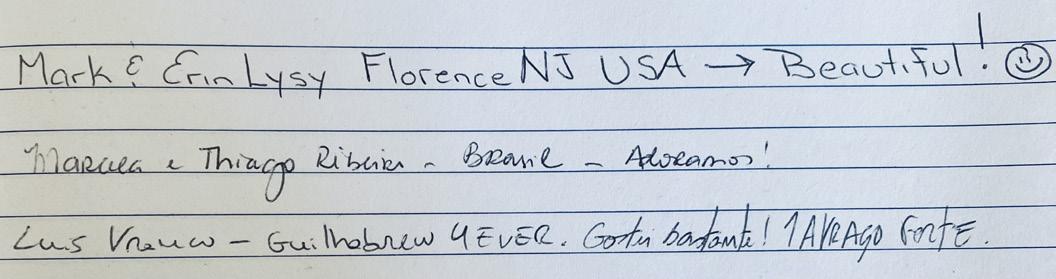 Mark & Erin Lysy Florence NJ USA → Beautiful! ☺
e Thiago Ribeiro - Brasil - Adoramos!
Luis - Guilhabrew 4EVER. Gostei bastante! 1 FORTE.